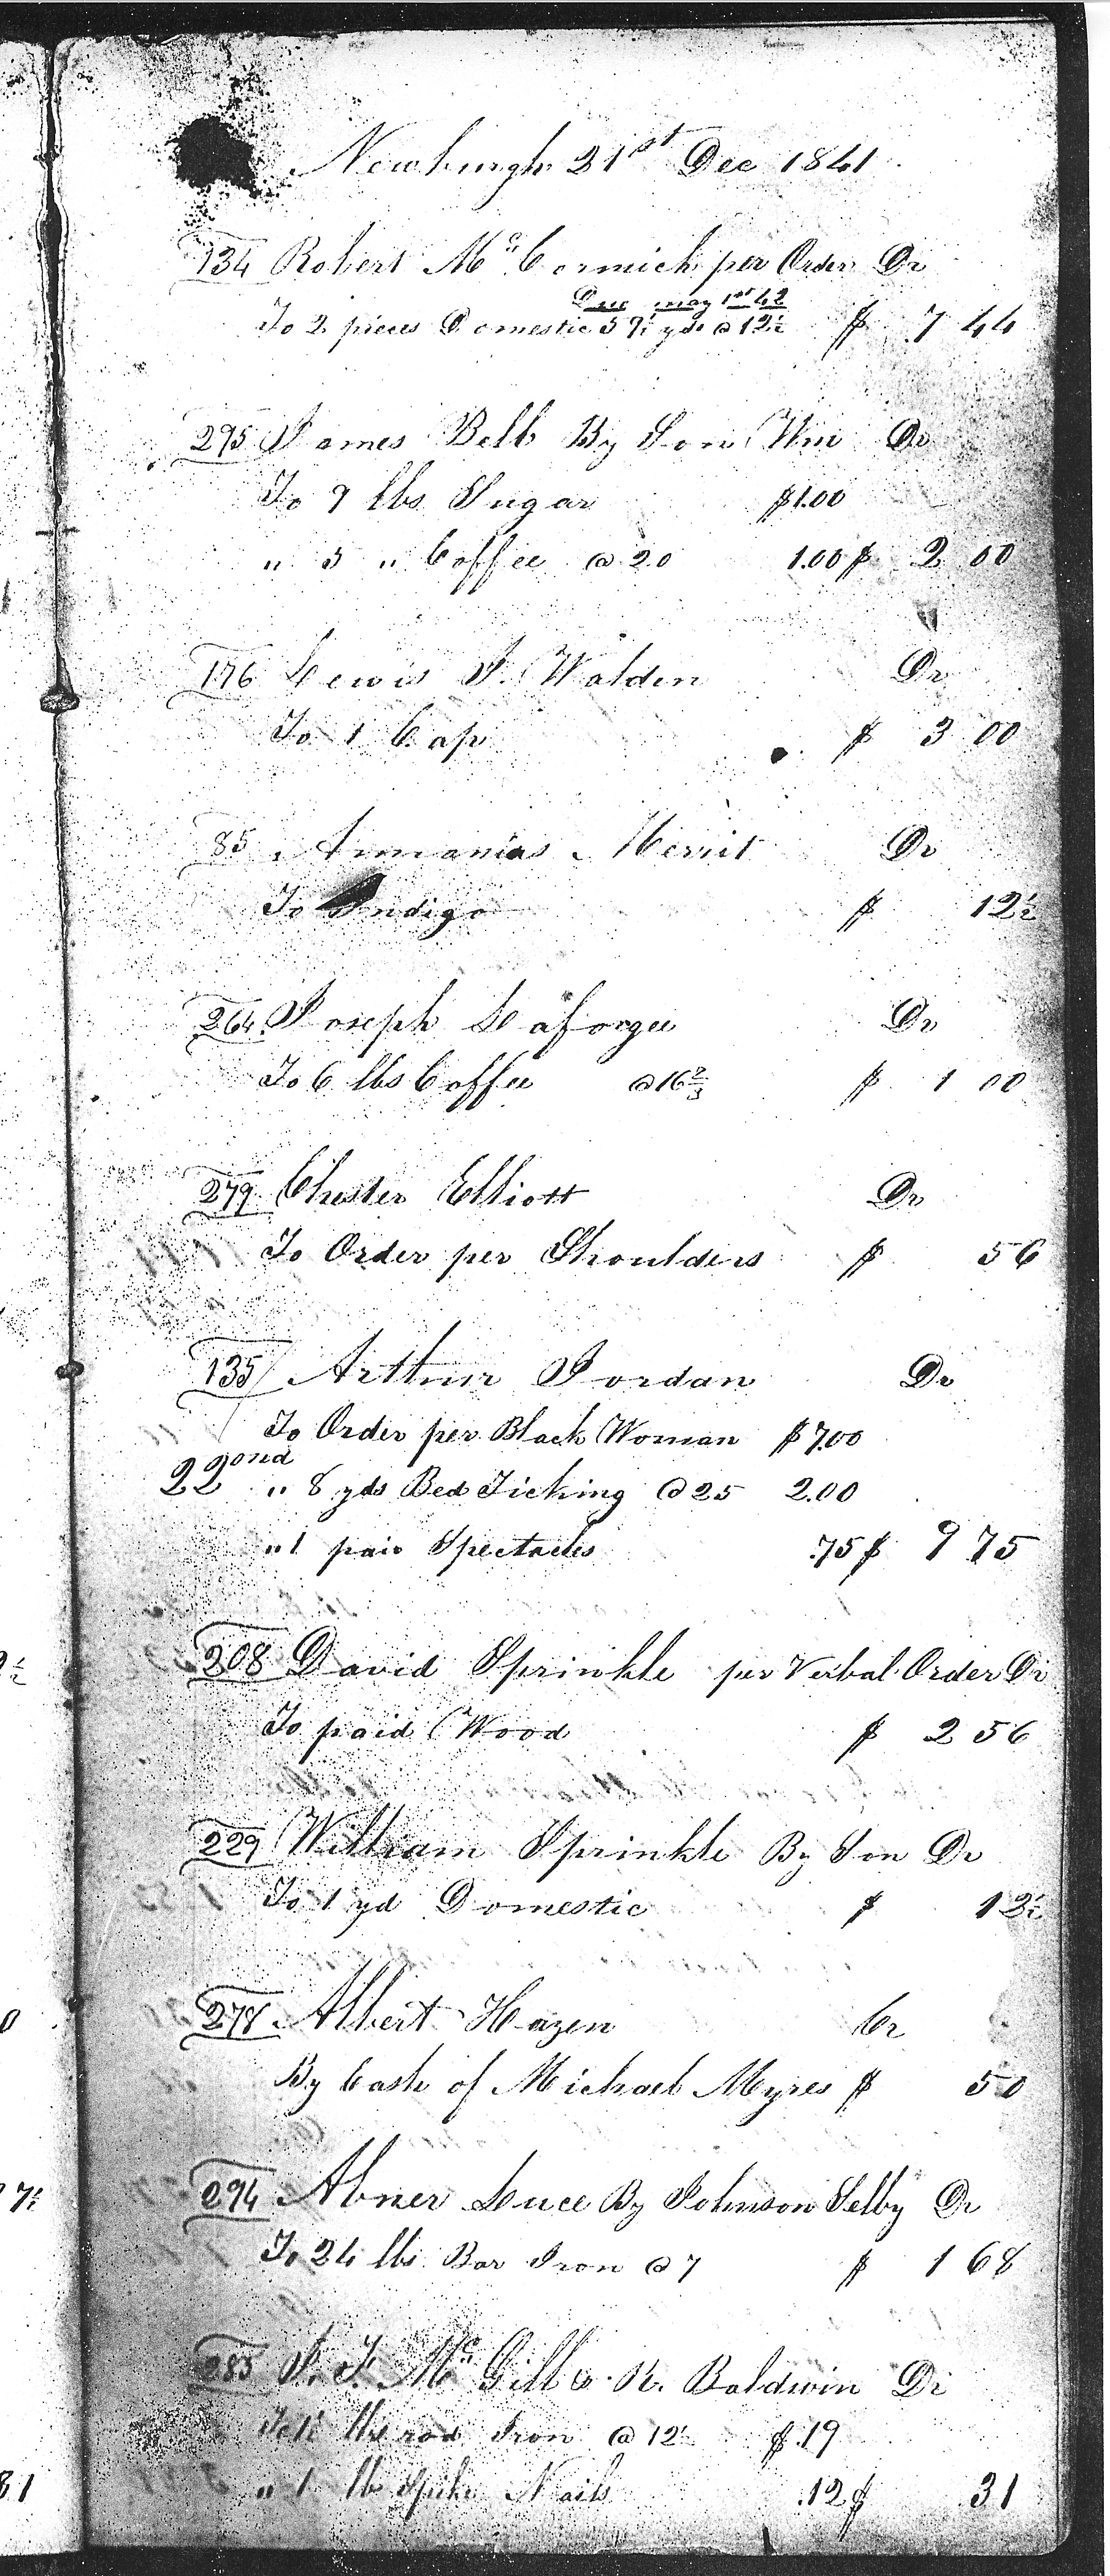 Newburgh 21st Dec 1841
134 Robert Mc.Cormick per Order Dr
Due may 1st 42
To 2 pieces Domestic 59½ yds @ 12½ $ 7 44
295 James Bell By Son Wm Dr
To 9 lbs Sugar $1.00
" 5 " Coffee @ 20 1.00 $ 2 00
176 Lewis J. Walden Dr
To 1 Cap $ 3 00
85 Annanias Merrit Dr
To Indigo $ 12½
264 Joseph Laforgee Dr
To 6 lbs Coffee @ 16⅔ $ 1 00
279 Chester Elliott Dr
To Order per Shoulders $ 56
135 Arthur Jordan Dr
To Order per Black Woman $7.00
22ond " 8 yds Bed Ticking @ 25 2.00
" 1 pair Spectacles .75 $ 9 75
208 David Sprinkle per Verbal Order Dr
To paid Wood $ 2 56
229 William Sprinkle By Son Dr
To 1 yd Domestic $ 12½
278 Albert Hazen Cr
By Cash of Michael Myres $ 50
294 Abner Luce By Johnson Selby Dr
To 24 lbs Bar Iron @ 7 $ 1 68
285 J. T. Mc Gill & R. Baldwin Dr
To 1½ lbs rod Iron @ 12½ $.19
" 1 lb Spike Nails .12 $ 31
9½
0
7½
81